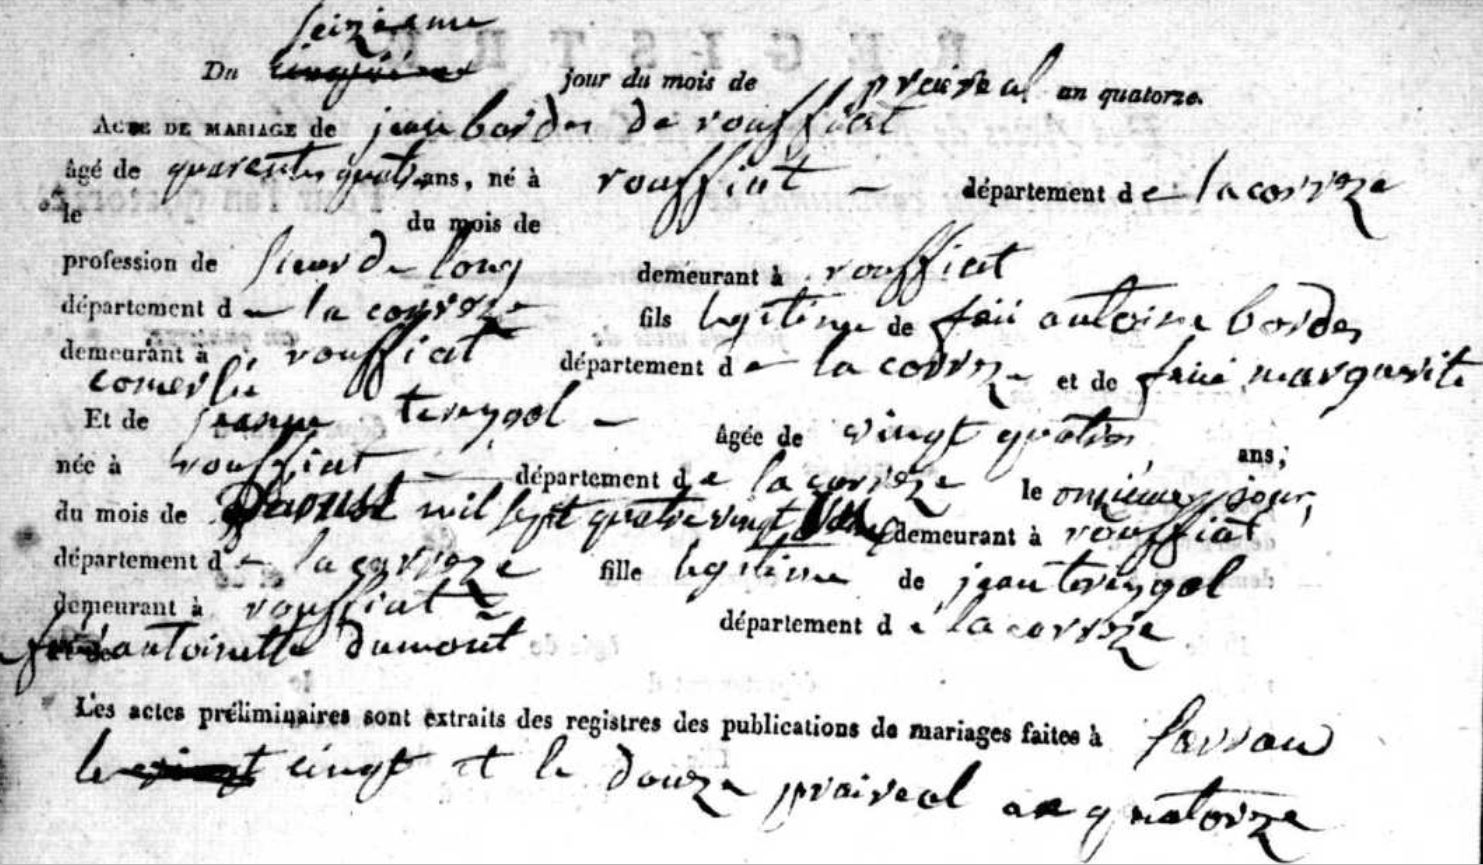 seizieme
Du cinquieme jour du mois de prereal an quatorze.
ACTE DE MARIAGE de jean bordes de rouffiat
âgé de quarente quatre ans, né à rouffiat – département d e la correze
le du mois de
profession de sieur de long demeurant à rouffiat
département d e la correze fils legitime de feu antoine bordes
demeurant à rouffiat département d e la correze et de feue marguerite
Et de jeanne tereygeol – âgée de vingt quatre ans;
née à rouffiat – département d e la correze le onzieme jour,
du mois de Daoust mil sept quatre vingt demeurant à rouffiat
département d e la correze fille legitime de jean treygeol
demeurant à rouffiat département d e la correze
et de feue antoinette dumont
Les actes préliminaires sont extraits des registres des publications de mariages faites à sarran
le cinq et le douze praireal an quatorze